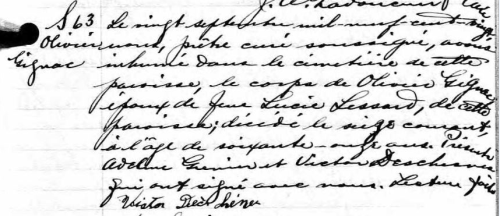 S 63
Olivier
Gignac
Le vingt septembre mil-neuf cent vingt
nous, prêtre curé soussigné, avons
inhumé dans le cimetière de cette
paroisse, le corps de Olivier Gignac
époux de feue Lucie Lessard, de cette
paroisse; décédé le seize courant
à l'âge de soixante-onze ans. Présents
et Victor Deschesnes
qui ont signé avec nous. Lecture faite
Victor Des